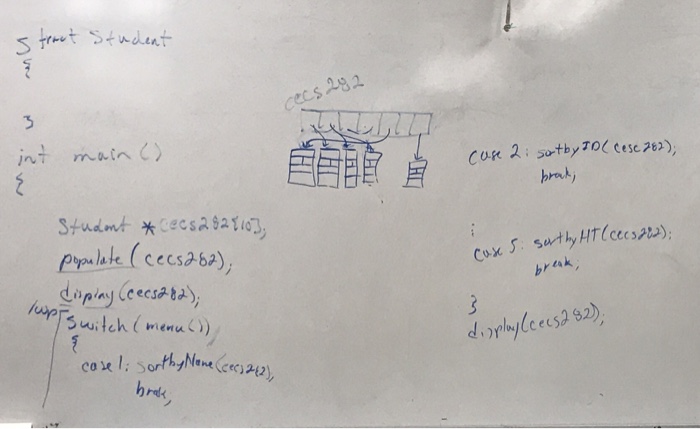 struct Student
{
}
int main()
{
Student *cecs282[10];
populate(cecs282);
display(cecs282);
loop
switch(menu())
{
case 1: sortbyName(cecs282);
break;
cecs282
case 2: sortbyID(cesc282);
break;
:
case 5: sortbyHT(cecs282);
break;
}
display(cecs282);